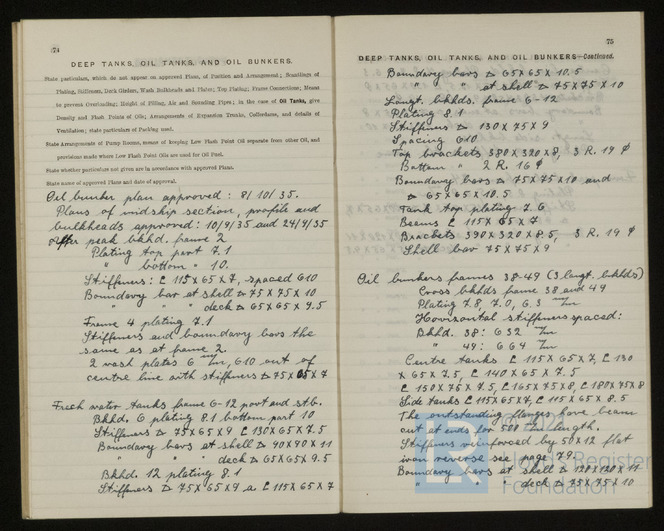 74
DEEP TANKS, OIL TANKS, AND OIL BUNKERS.
State particulars, which do not appear on approved Plans, of Position and Arrangement; Scantlings of
Plating, Stiffeners, Deck Girders, Wash Bulkheads and Plates; Top Plating; Frame Connections; Means
to prevent Overloading; Height of Filling, Air and Sounding Pipes; in the case of Oil Tanks, give
Density and Flash Points of Oils; Arrangements of Expansion Trunks, Cofferdams, and details of
Ventilation; state particulars of Packing used.
State Arrangements of Pump Rooms, means of keeping Low Flash Point Oil separate from other Oil, and
provisions made where Low Flash Point Oils are used for Oil Fuel.
State whether particulars not given are in accordance with approved Plans.
State name of approved Plans and date of approval.
Oil bunker plan approved : 8/10/35.
Plans of midship section, profile and
bulkheads approved : 10/9/35 and 24/9/35
After peak bkhd. frame 2
Plating top part 7.1
" bottom " 10.
Stiffeners: L 115 x 65 x 7, spaced 610
Boundary bar at shell ⊾ 75 x 75 x 10
" " " deck ⊾ 65 x 65 x 9.5
Frame 4 plating 7.1
Stiffeners and boundary bars the
same as at frame 2.
2 wash plates 6 m/m, 610 out of
centre line with stiffeners ⊾ 75 x 65 x 7
Fresh water tanks frame 6-12 port and stb.
Bkhd. 6 plating 8.1 bottom part 10
Stiffeners ⊾ 75 x 65 x 9 L 130 x 65 x 7.5
Boundary bars at shell ⊾ 90 x 90 x 11
" " " deck ⊾ 65 x 65 x 9.5
Bkhd. 12 plating 8.1
Stiffeners ⊾ 75 x 65 x 9 a L 115 x 65 x 7
75
DEEP TANKS, OIL TANKS, AND OIL BUNKERS—Continued.
Boundary bars ⊾ 65 x 65 x 10.5
" " at shell ⊾ 75 x 75 x 10
Longt. bkhds. frame 6-12
Plating 8.1
Stiffeners ⊾ 130 x 75 x 9
Spacing 610
Top brackets 380 x 320 x 8, 3 R. 19 ф
Bottom " 2 R. 16 ф
Boundary bars ⊾ 75 x 75 x 10 and
⊾ 65 x 65 x 10.5
Tank top plating 7.6
Beams L 115 x 65 x 7
Brackets 390 x 320 x 8.5, 3 R. 19 ф
Shell bar 75 x 75 x 9
Oil bunkers frames 38-49 (3 longt. bkhds)
Cross bkhds frame 38 and 49
Plating 7.8, 7.0, 6.3 m/m
Horizontal stiffeners spaced:
Bkhd. 38: 632 m/m
" 49: 664 m/m
Centre tanks L 115 x 65 x 7, L 130
x 65 x 7.5, L 140 x 65 x 7.5
L 150 x 75 x 7.5, L 165 x 75 x 8, L 180 x 75 x 8
Side tanks L 115 x 65 x 7, L 115 x 65 x 8.5
The outstanding flanges have been
cut at ends for 500 m/m length.
Stiffeners reinforced by 50 x 12 flat
iron reverse see page 79.
Boundary bars at shell ⊾ 120 x 120 x 11
" " " deck ⊾ 75 x 75 x 10
LR
Lloyd's Register
Foundation